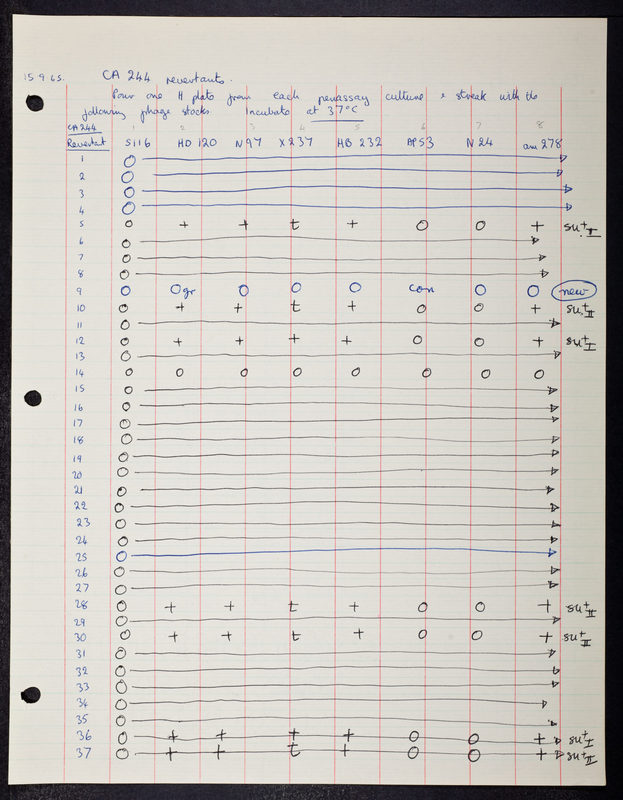 15.9.65. CA 244 revertants.
Pour one H plate from each penassay culture & streak with the
following phage stocks. Incubate at 37°C
CA244 1 2 3 4 5 6 7 8
Revertant S116 HD 120 N97 X237 HB 232 BP53 N24 am 278
1 O
2 O
3 O
4 O
5 O + + t + O O + su+I
6 O
7 O
8 O
9 O Ogr O O O con O O new
10 O + + t + O O + su+II
11 O
12 O + + + + O O + su+I
13 O
14 O O O O O O O O
15 O
16 O
17 O
18 O
19 O
20 O
21 O
22 O
23 O
24 O
25 O
26 O
27 O
28 O + + t + O O + su+II
29 O
30 O + + t + O O + su+II
31 O
32 O
33 O
34 O
35 O
36 O + + + + O O + su+I
37 O + + t + O O + su+II